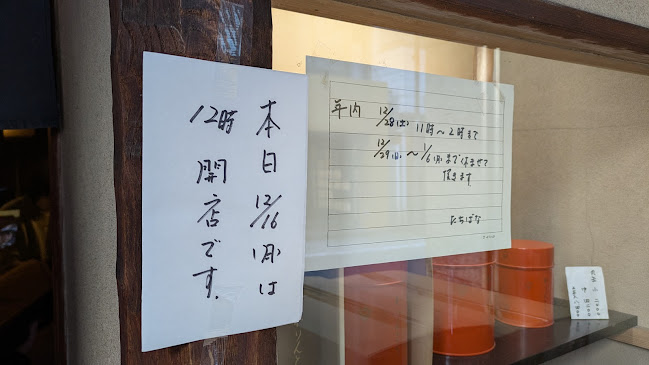 本日12/16(月)は
12時 開店です。
年内 12/28(土) 11時〜2時まで
12/29(日)〜1/6(月)まで休ませて
頂きます
たちばな